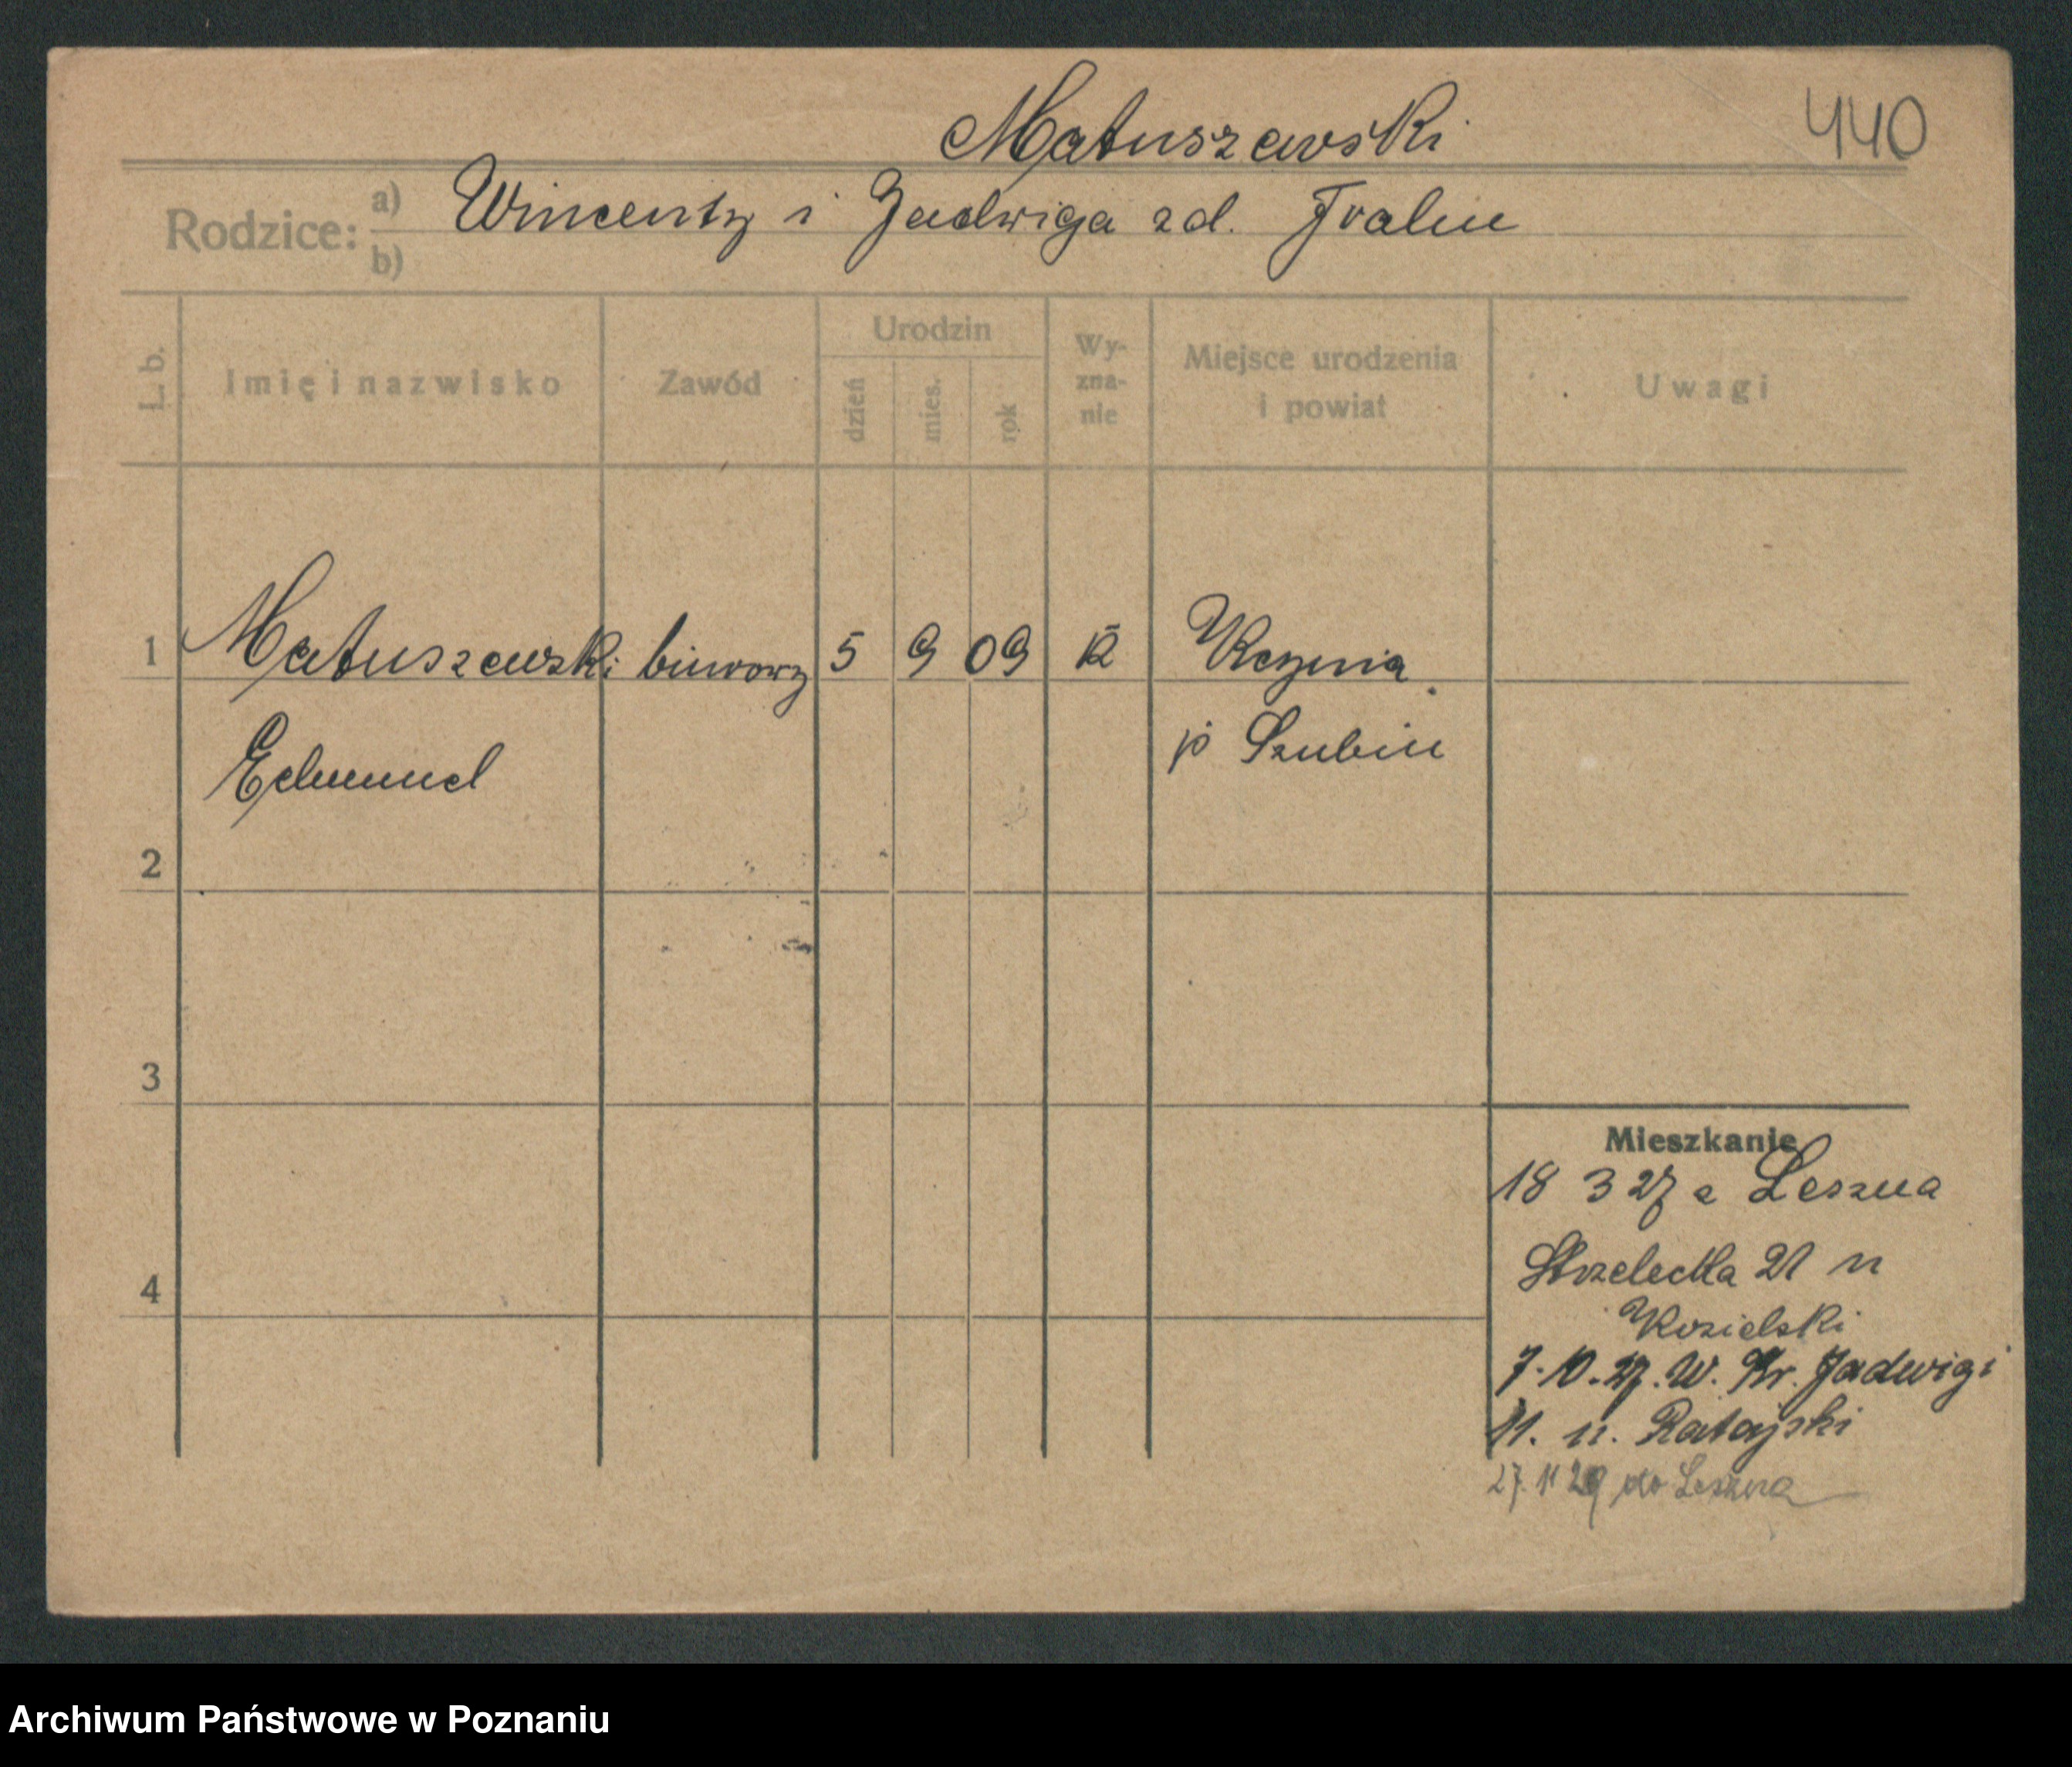 Matuszewski
440
Rodzice: a) Wincenty i Jadwiga zd.
b)
L. b.
Imię i nazwisko
Zawód
Urodzin
dzień
mies.
rok
Wy-
zna-
nie
Miejsce urodzenia
i powiat
Uwagi
1 Matuszewski biurowy 5 9 09 Kcynia
Edmund p Szubin
2
3
4
Mieszkanie
18 3 27 z Leszna
Strzelecka 21 u
Kozielski
7.10.27. W. Kr. Jadwigi
11. u. Ratajski
27. 11 29 do Leszna
Archiwum Państwowe w Poznaniu